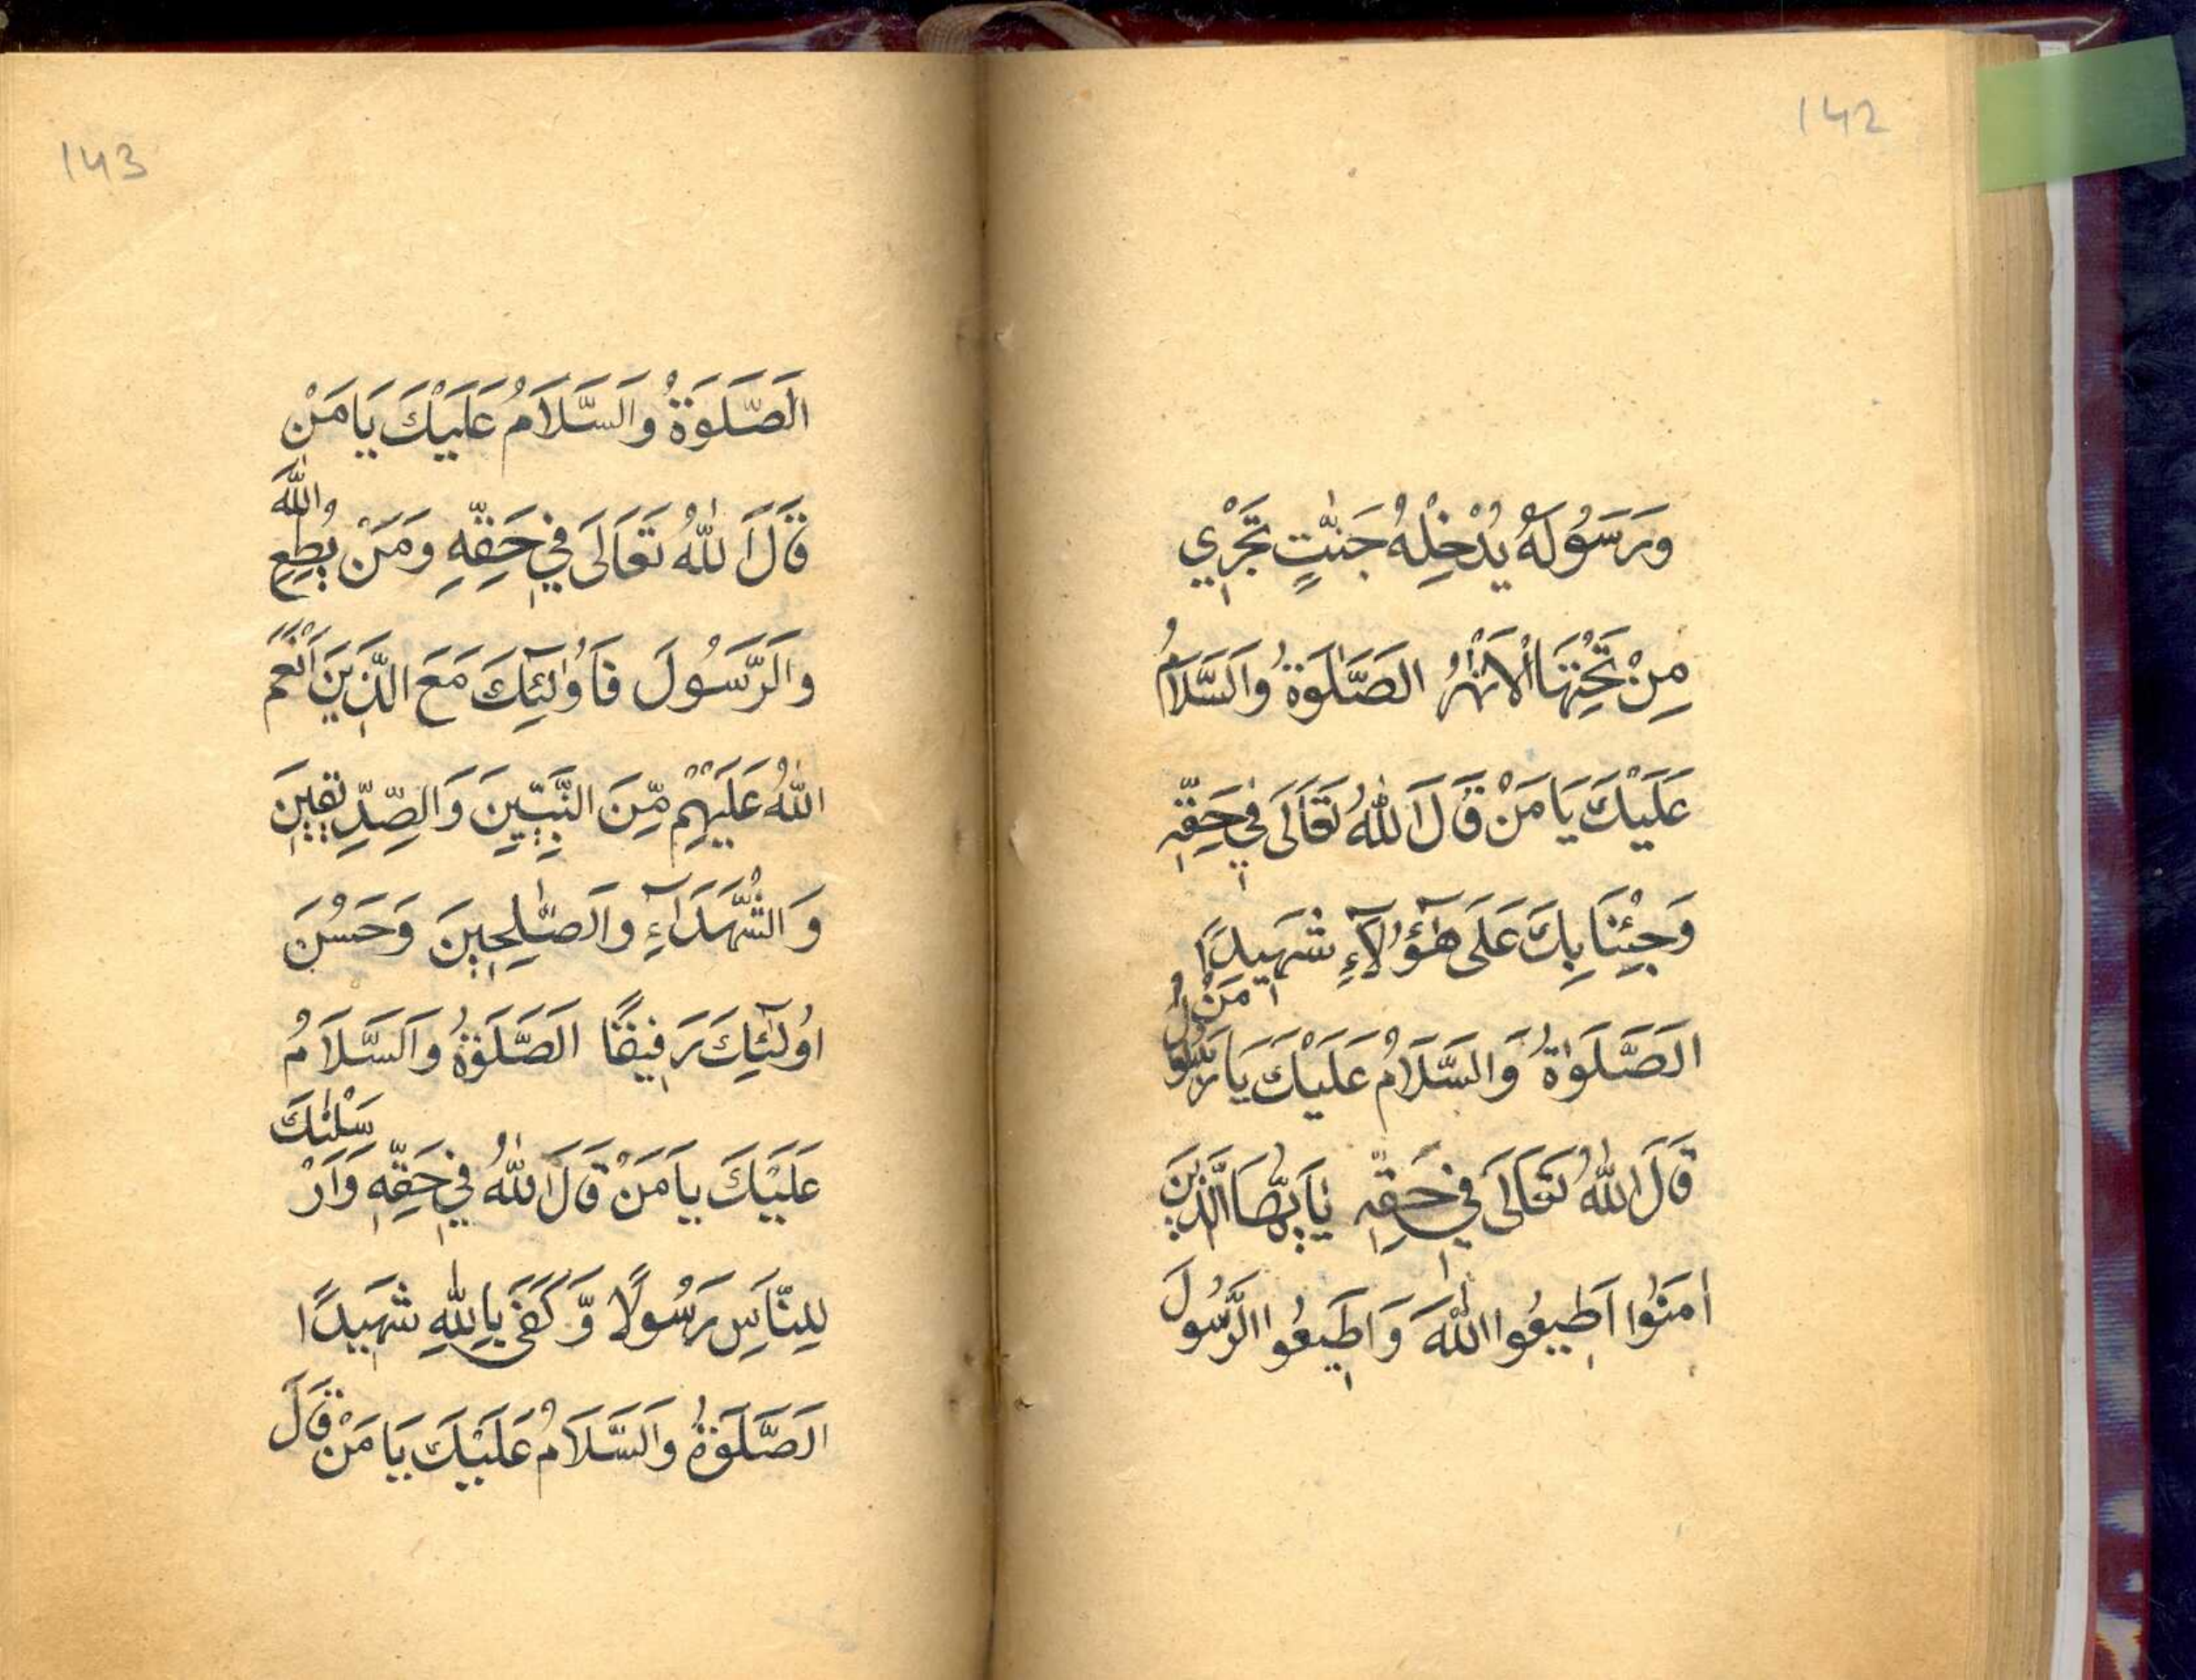 142
وَرَسُولَهُ يُدْخِلْهُ جَنّٰتٍ تَجْرِي
مِنْ تَحْتِهَا الْاَنْهٰرُ الصَّلٰوةُ وَالسَّلَامُ
عَلَيْكَ يَا مَنْ قَالَ اللّٰهُ تَعَالَى فِي حَقِّهٖ
وَجِئْنَا بِكَ عَلَى هٰٓؤُلَآءِ شَهِيدًا
الصَّلَوٰةُ وَالسَّلَامُ عَلَيْكَ يَا رَسُولُ مَنْ
قَالَ اللّٰهُ تَعَالَى فِي حَقِّهٖ يٰاَيُّهَا الَّذِينَ
اٰمَنُوا اَطِيعُوا اللّٰهَ وَاَطِيعُوا الرَّسُولَ
143
اَلصَّلَوةُ وَالسَّلَامُ عَلَيْكَ يَا مَنْ
قَالَ اللّٰهُ تَعَالَى فِي حَقِّهِ وَمَنْ يُطِعِ اللّٰهَ
وَالرَّسُولَ فَاُولٰٓئِكَ مَعَ الَّذِينَ اَنْعَمَ
اللّٰهُ عَلَيْهِمْ مِّنَ النَّبِيِّينَ وَالصِّدِّيقِينَ
وَالشُّهَدَآءِ وَالصّٰلِحِينَ وَحَسُنَ
اُولٰٓئِكَ رَفِيقًا الصَّلَوةُ وَالسَّلَامُ
عَلَيْكَ يَا مَنْ قَالَ اللّٰهُ فِي حَقِّهِ وَاَرْسَلْنٰكَ
لِلنَّاسِ رَسُولًا وَّكَفَى بِاللّٰهِ شَهِيدًا
الصَّلَوةُ وَالسَّلَامُ عَلَيْكَ يَا مَنْ قَالَ